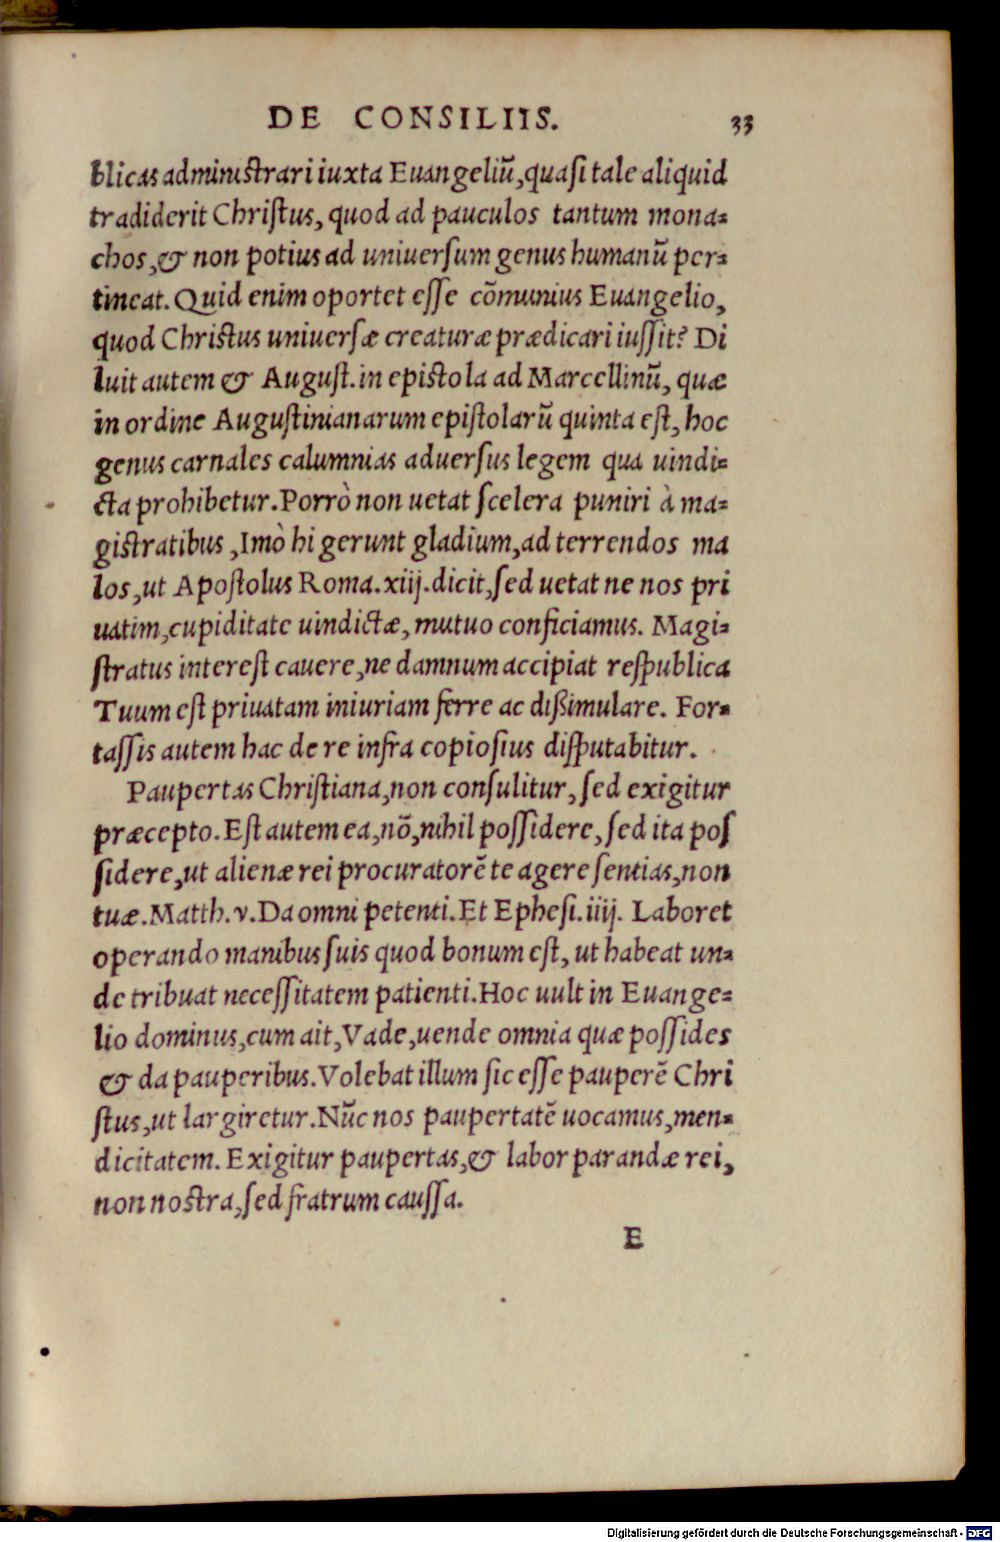 DE CONSILIIS. 33
blicas administrari iuxta Euangeliū, quasi tale aliquid
tradiderit Christus, quod ad pauculos tantum mona-
chos, & non potius ad uniuersum genus humanū per-
tineat. Quid enim oportet esse cōmunius Euangelio,
quod Christus uniuersæ creaturæ prædicari iussit? Di
luit autem & August. in epistola ad Marcellinū, quæ
in ordine Augustinianarum epistolarū quinta est, hoc
genus carnales calumnias aduersus legem qua uindi-
cta prohibetur. Porrò non uetat scelera puniri à ma-
gistratibus, Imò hi gerunt gladium, ad terrendos ma
los, ut Apostolus Roma. xiij. dicit, sed uetat ne nos pri
uatim, cupiditate uindictæ, mutuo conficiamus. Magi-
stratus interest cauere, ne damnum accipiat respublica
Tuum est priuatam iniuriam ferre ac dißimulare. For-
tassis autem hac de re infra copiosius disputabitur.
Paupertas Christiana, non consulitur, sed exigitur
præcepto. Est autem ea, nō, nihil possidere, sed ita pos
sidere, ut alienæ rei procuratorē te agere sentias, non
tuæ. Matth. v. Da omni petenti. Et Ephesi. iiij. Laboret
operando manibus suis quod bonum est, ut habeat un-
de tribuat necessitatem patienti. Hoc uult in Euange-
lio dominus, cum ait, Vade, uende omnia quæ possides
& da pauperibus. Volebat illum sic esse pauperē Chri
stus, ut largiretur. Nūc nos paupertatē uocamus, men-
dicitatem. Exigitur paupertas, & labor parandæ rei,
non nostra, sed fratrum caussa.
E
Digitalisierung gefördert durch die Deutsche Forschungsgemeinschaft - DFG